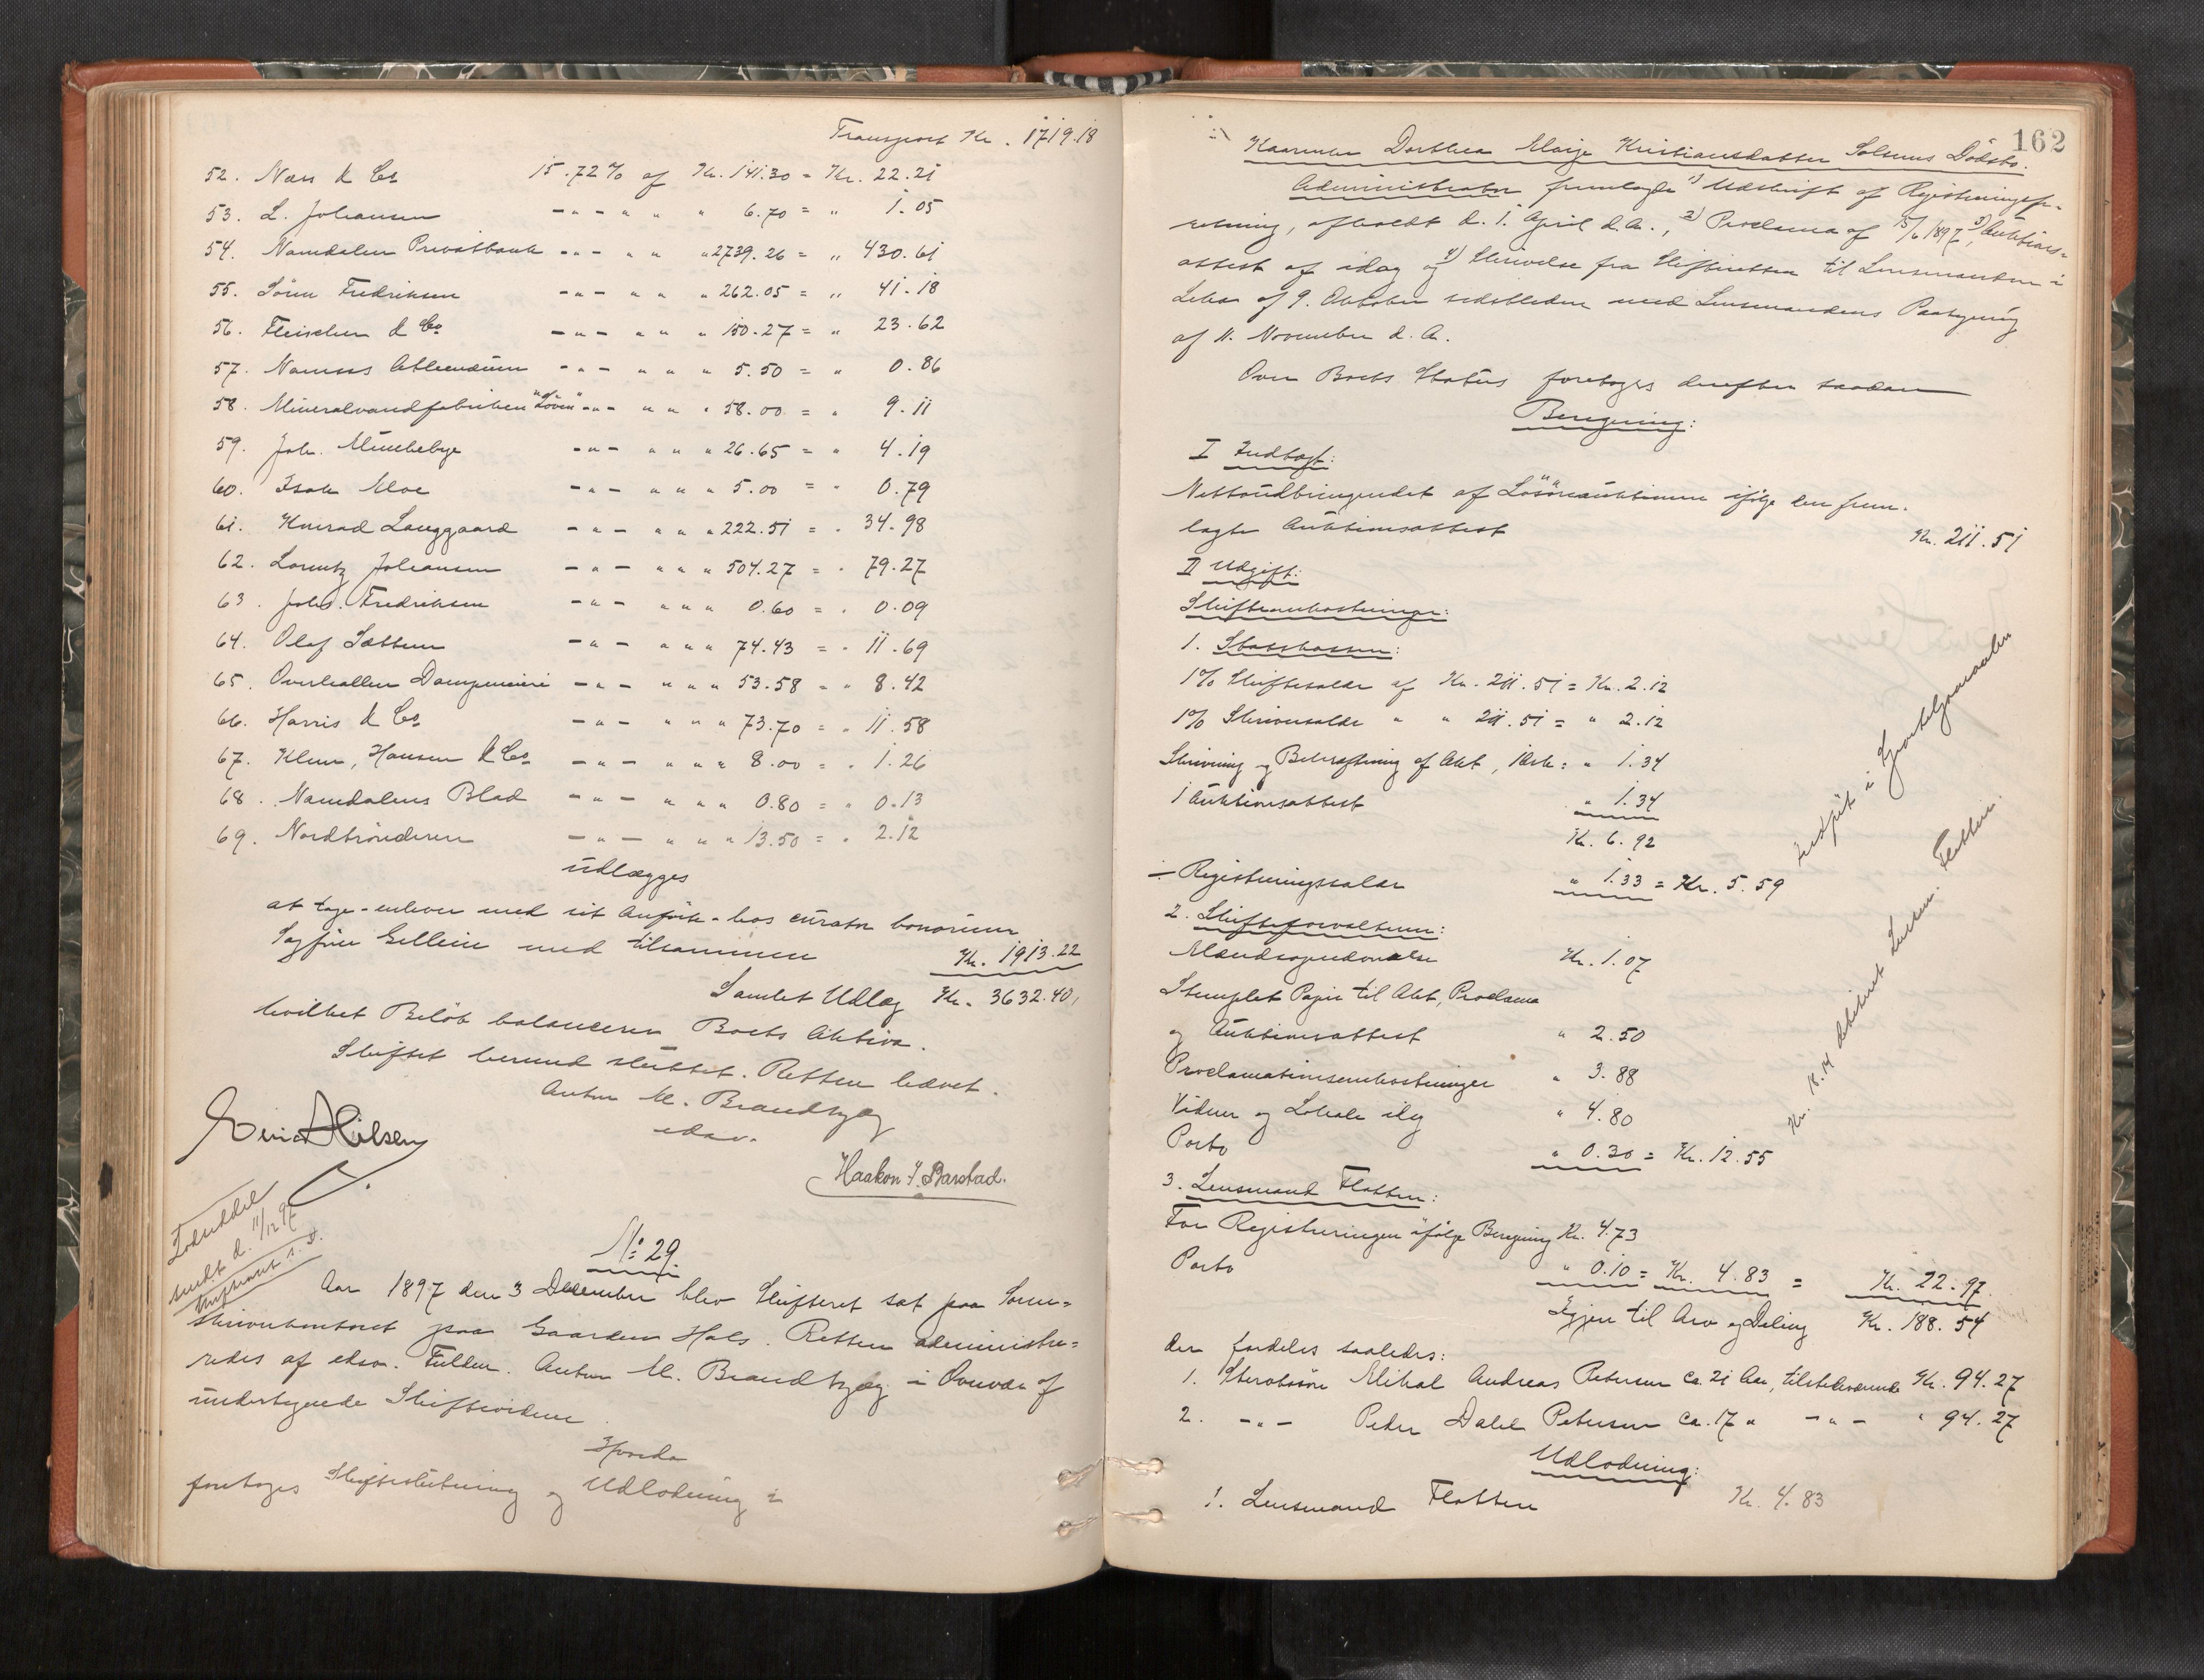 Transport Kr. 1719.18
52. Næss & Co 15.72% af Kr. 141.30 = Kr. 22.21
53. L. Johansen -"- " " " 6.70 = " 1.05
54. Namdalen Privatbank -"- " " 2739.26 = " 430.61
55. Sönn Fredriksen -"- " " " 262.05 = " 41.18
56. Fleischer & Co -"- " " " 150.27 = " 23.62
57. Namsos Athenæum -"- " " " 5.50 = " 0.86
58. Mineralvandfabriken "Löven" -"- " " " 58.00 = " 9.11
59. Joh. Munkebye -"- " " " 26.65 = " 4.19
60. Isak Moe -"- " " " 5.00 = " 0.79
61. Konrad Langgaard -"- " " " 222.51 = " 34.98
62. Lorentz Johansen -"- " " " 504.27 = " 79.27
63. Johs. Fredriksen -"- " " " 0.60 = " 0.09
64. Olaf Sættem -"- " " " 74.43 = " 11.69
65. Overhallen Dampmeieri -"- " " " 53.58 = " 8.42
66. Harris & Co -"- " " " 73.70 = " 11.58
67. Klem, Hansen & Co -"- " " " 8.00 = " 1.26
68. Namdalens Blad -"- " " " 0.80 = " 0.13
69. Nordtrönderen -"- " " " 13.50 = " 2.12
udlægges
at tage - enhver med sit Anförte - hos curator bonorum
Sagfører Gellein med tilsammen Kr. 1913.22
Samlet Udlæg Kr. 3632.40,
hvilket Belöb balancerer Boets Aktiva.
Skiftet hermed sluttet. Retten hævet.
Anton M. Brandtzæg
edsv.
Einar Nilsen
Haakon J. Barstad.
Lodseddel
sendt d. 11/12 97
No 29.
Aar 1897 den 3 December blev Skifteret sat paa Soren-
skriverkontoret paa Gaarden Hals. Retten administre-
redes af edsv. Fuldm. Anton M. Brandtzæg i Overvær af
undertegnede Skiftevidner.
Hvorda
foretoges Skifteslutning og Udlodning i
162
Kaarenke Dorthea Marje Kristiansdatter Solsems Dödsbo.
Administrator fremlagde 1) Udskrift af Registreringsfor-
retning, afholdt d. 1. April d.A., 2) Proclama af 15/6 1897, 3) Auktions-
attest af idag og 4) Skrivelse fra Skifteretten til Lensmanden i
Leka af 9. Oktober sidstleden med Lensmandens Paategning
af 11. November d.A.
Over Boets Status foretoges derefter saadan
Beregning:
I Indtægt:
Nettoudbringendet af Lösöreauktionen ifölge den frem-
lagte Auktionsattest Kr. 211.51
II Udgift:
Skifteomkostninger:
1. Statskassen:
1% Skiftesalær af Kr. 211.51 = Kr. 2.12
1% Skriversalær " " 211.51 = " 2.12
Skrivning og Bekræftning af Akt, 1 Ark: " 1.34
1 Auktionsattest " 1.34
Kr. 6.92
÷ Registreringssalær " 1.33 = Kr. 5.59
2. Skifteforvalteren:
Mændsopnævnelse Kr. 1.07
Stemplet Papir til Akt, Proclama
og Auktionsattest " 2.50
Proclamationsomkostninger " 3.88
Vidner og Lokale idag " 4.80
Porto " 0.30 = Kr. 12.55
3. Lensmand Flatten:
For Registreringen ifölge Beregning Kr. 4.73
Porto " 0.10 = Kr. 4.83 = Kr. 22.97.
Igjen til Arv og Deling Kr. 188.54
der fordeles saaledes:
1. Sterbsöne Mikal Andreas Petersen ca. 21 Aar, tilstedeværende Kr. 94.27
2. -"- Peder Dahl Petersen ca. 17 " -"- " 94.27
Udlodning:
1. Lensmand Flatten Kr. 4.83
Indfört i Sporteljournalen
Kr. 18.14 debiteret Lensm. Flatten.